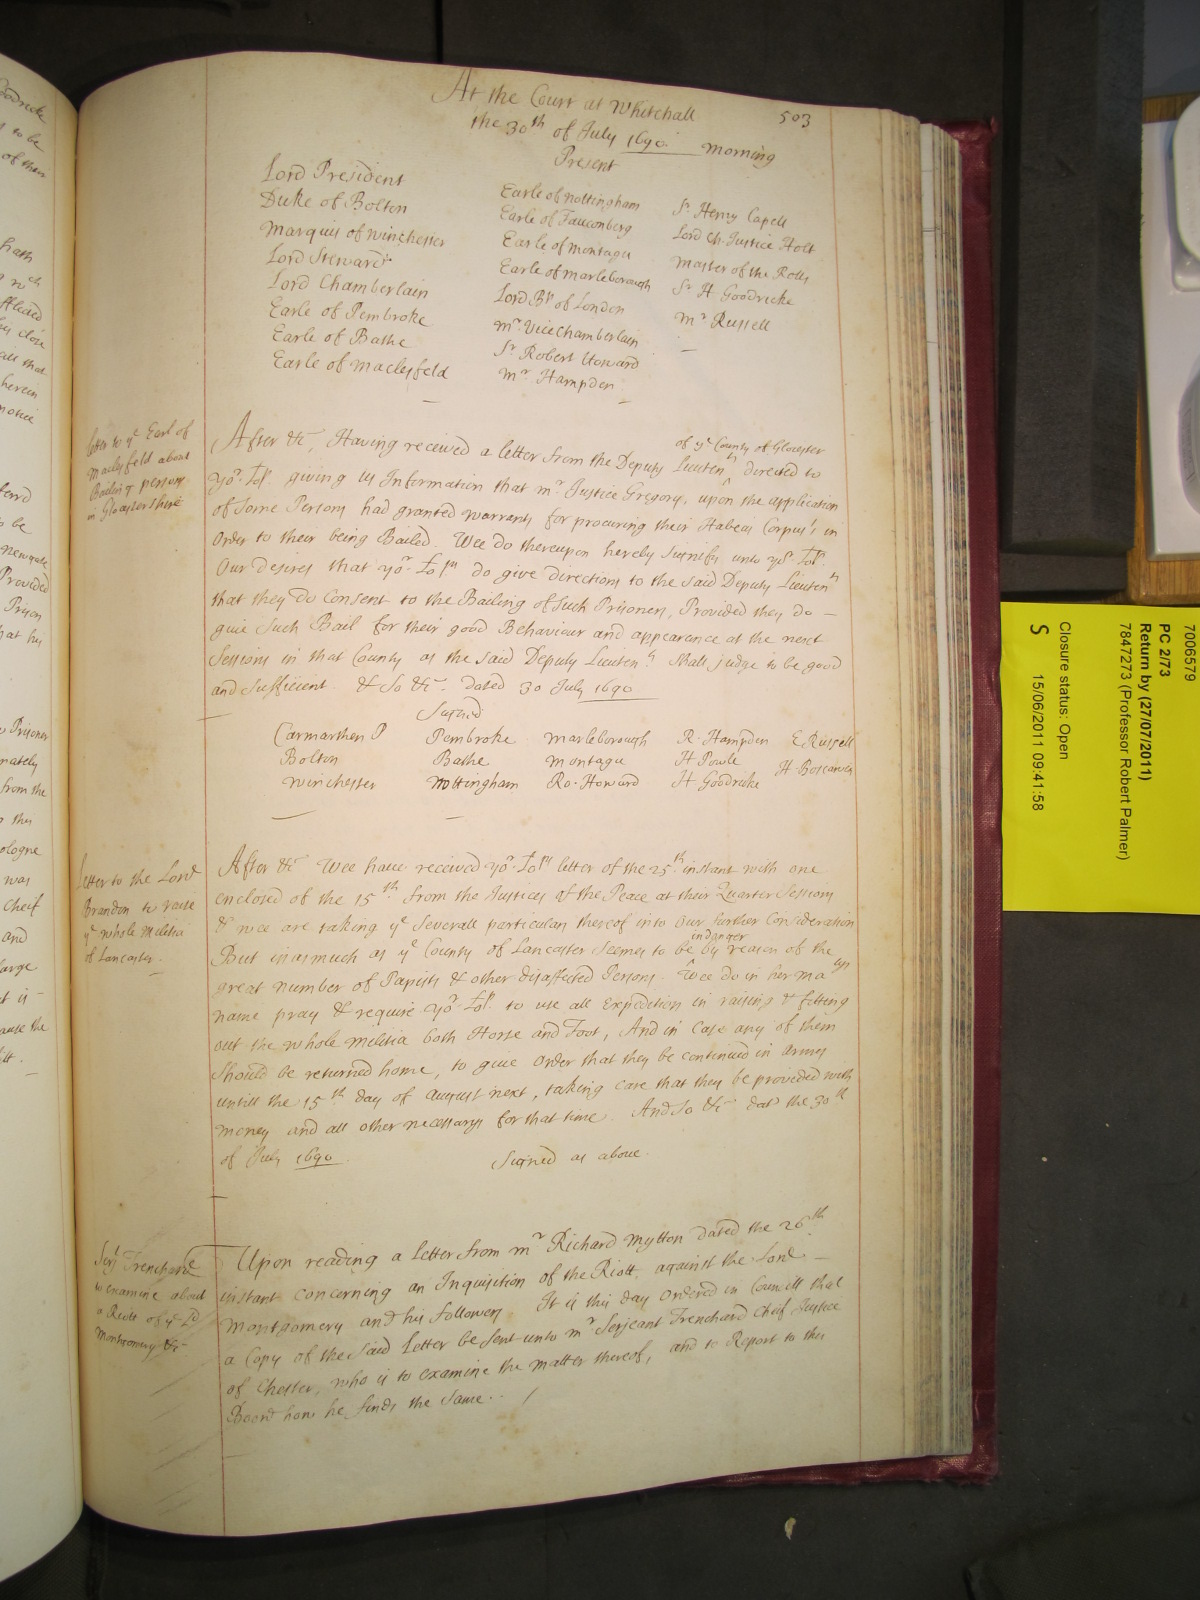 503
At the Court at Whitehall
the 30th of July 1690 morning
Present
Lord President
Duke of Bolton
Marquis of Winchester
Lord Steward
Lord Chamberlain
Earle of Pembroke
Earle of Bathe
Earle of Maclesfeld
Earle of Nottingham
Earle of Fauconberg
Earle of Montagu
Earle of Marleborough
Lord Bp of London
Mr Vice Chamberlain
Sr Robert Howard
Mr Hampden
Sr Henry Capell
Lord Ch. Justice Holt
Master of the Rolls
Sr H Goodricke
Mr Russell
Letter to ye Earl of
Maclesfeld about
Bailing persons
in Glocestershire
of ye County of Glocester
After &c, Having received a letter from the Deputy Lieuten^ts directed to
yor Lop. giving us Information that Mr Justice Gregory, upon the application
of some Persons had granted warrants for procuring their Habeas Corpus's in
Order to their being Bailed. Wee do thereupon hereby signify unto yor Lop.
Our desires that yor Lopps do give directions to the said Deputy Lieutents
that they do Consent to the Bailing of such Prisoners, Provided they do
give such Bail for their good Behaviour and appearance at the next
Sessions in that County as the said Deputy Lieutents shall judge to be good
and sufficient. & So &c. dated 30 July 1690
Signed
Carmarthen P Pembroke Marleborough R. Hampden E Russell
Bolton Bathe Montagu H Powle H Boscawen
Winchester Nottingham Ro. Howard H Goodricke
Letter to the Lord
Brandon to raise
ye whole Militia
of Lancaster.
After &c Wee have received yor Lopps letter of the 25th instant with one
enclosed of the 15th from the Justices of the Peace at their Quarter Sessions
& wee are taking ye severall particulars thereof into Our further Consideration
in danger
But inasmuch as ye County of Lancaster seemes to be by reason of the
great number of Papists & other disaffected Persons. Wee do in her Maties
name pray & require yor Lop. to use all Expedition in raising & fitting
out the whole Militia both Horse and Foot, And in case any of them
should be returned home, to give Order that they be continued in Armes
untill the 15th day of August next, taking care that they be provided with
money and all other necessarys for that time. And so &c dat the 30th
of July 1690 Signed as above.
Serjt Trenchard
to examine about
a Riott of ye Ld
Montgomery &c
Upon reading a letter from Mr Richard Mytton dated the 26th
instant concerning an Inquisition of the Riott, against the Lord
Montgomery and his followers It is this day Ordered in Councill that
a Copy of the said Letter be sent unto Mr Serjeant Trenchard Cheif Justice
of Chester, who is to examine the matter thereof, and to Report to this
Board how he finds the same.
7006579
PC 2/73
Return by (27/07/2011)
7847273 (Professor Robert Palmer)
Closure status: Open
S 15/06/2011 09:41:58